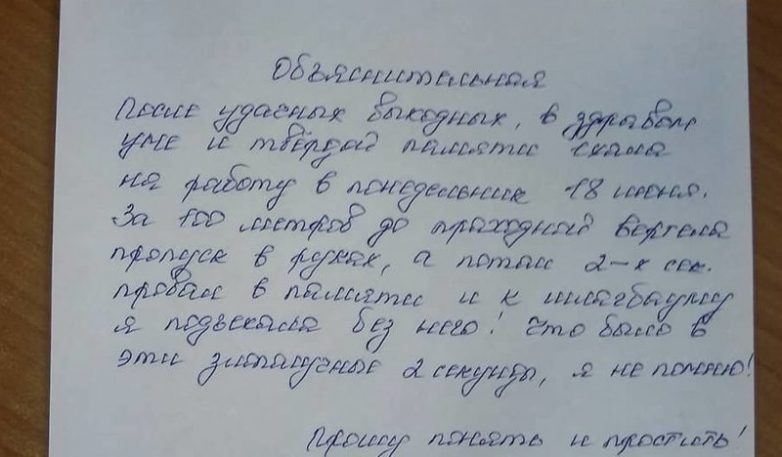 Объяснительная
После удачных выходных, в здравом
уме и твёрдой памяти ехала
на работу в понедельник 18 июня.
За 100 метров до проходной вертела
пропуск в руках, а потом 2-х сек.
провал в памяти и к шлагбауму
я подъехала без него! Что было в
эти злополучные 2 секунды, я не помню!
Прошу понять и простить!